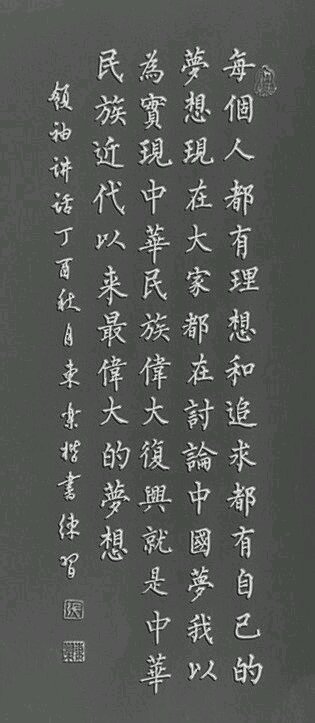 每個人都有理想和追求都有自己的
夢想現在大家都在討論中國夢我以
為實現中華民族偉大復興就是中華
民族近代以来最偉大的夢想
领袖讲话丁酉秋月東樂楷書練習